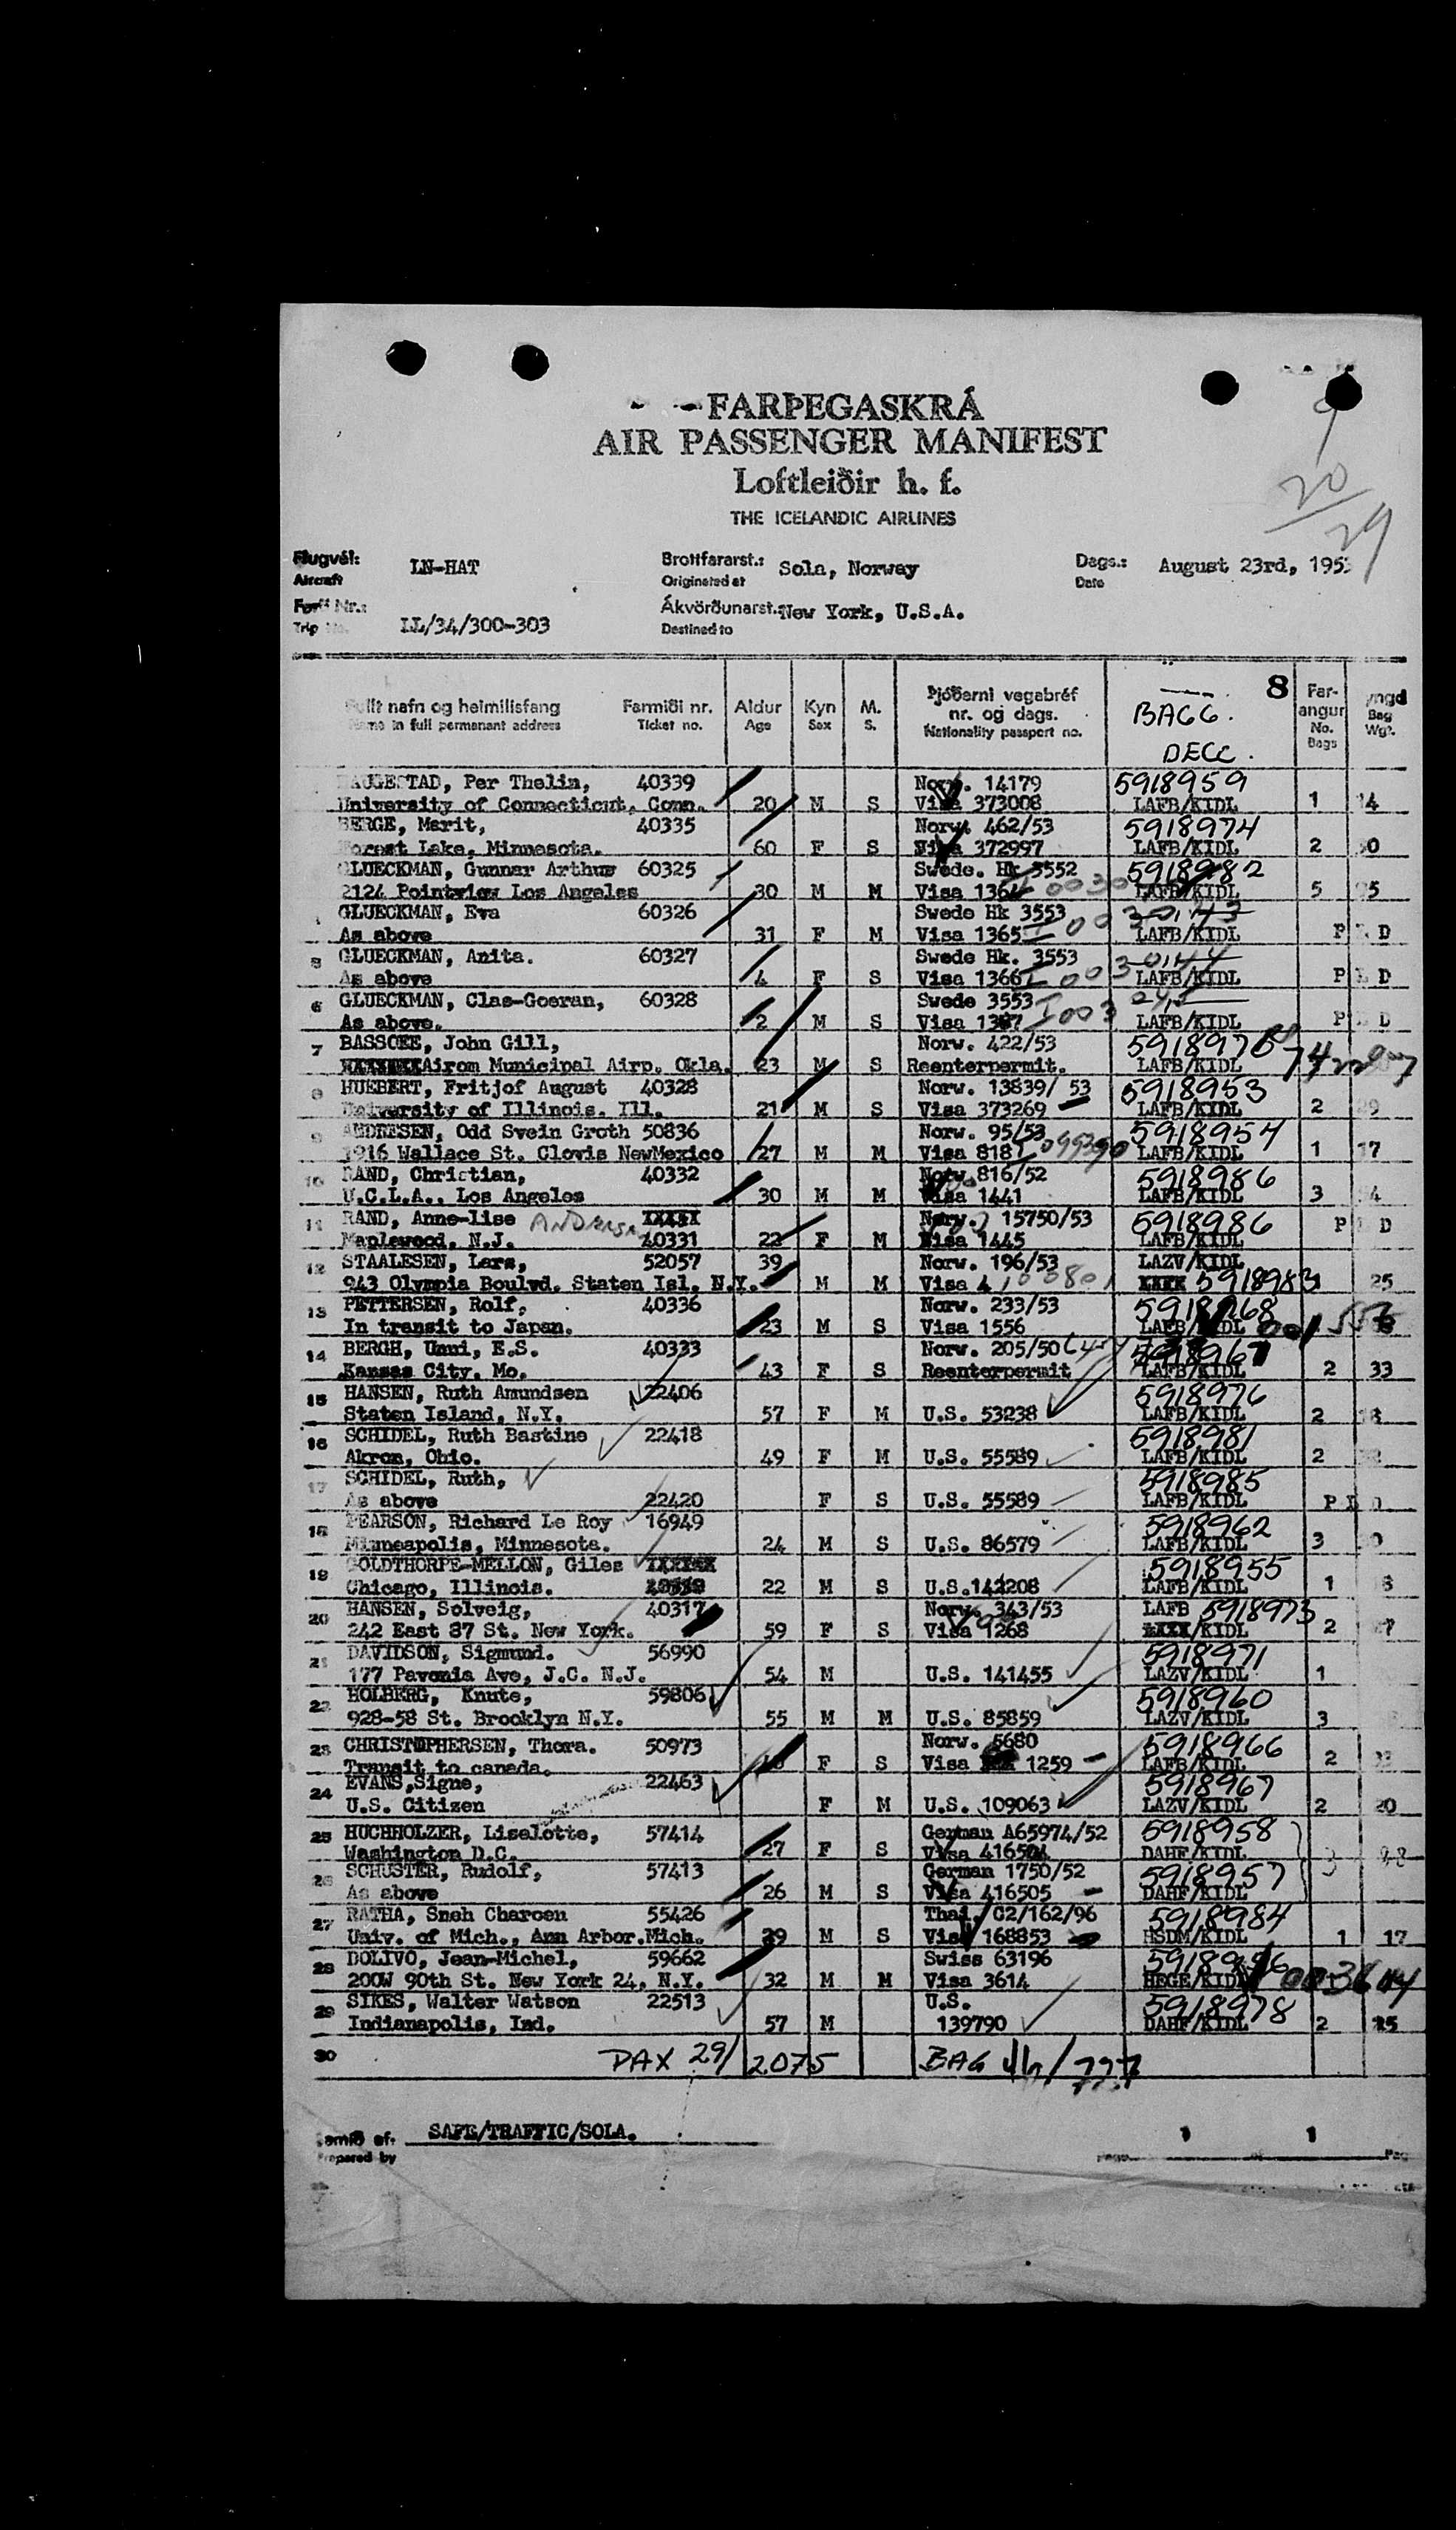 FARÞEGASKRÁ
AIR PASSENGER MANIFEST
Loftleiðir h. f.
THE ICELANDIC AIRLINES
9
20/29
Flugvél: LN-HAT Brottfararst.: Sola, Norway Dags.: August 23rd, 195
Aircraft Originated at Date
Nr.: LL/34/300-303 Ákvörðunarst.: New York, U.S.A.
Trip Destined to
8
nafn og heimilisfang Farmiði nr. Aldur Kyn M. Þjóðerni vegabréf nr. og dags. BAGG. DECL. Far-angur
Name in full permanant address Ticket no. Age Sex S. Nationality passport no. No. Bags Bag Wgt.
Per Thelin, 40339 14179 5918959
University of Connecticut, Conn. 20 M S Visa 373008 LAFB/KIDL 1 14
BERGE, Marit, 40335 Norw. 462/53 5918974
Forest Lake, Minnesota. 60 F S Visa 372997 LAFB/KIDL 2
GLUECKMAN, Gunnar Arthur 60325 Swede. Hk 3552 5918982
2124 Pointview Los Angeles 30 M M Visa 1364 LAFB/KIDL 5
GLUECKMAN, Eva 60326 Swede Hk 3553
As above 31 F M Visa 1365 LAFB/KIDL P D
5 GLUECKMAN, Anita. 60327 Swede Hk. 3553
As above 4 F S Visa 1366 I 0030144 LAFB/KIDL P D
6 GLUECKMAN, Clas-Goeran, 60328 Swede 3553
As above. 2 M S Visa LAFB/KIDL P D
7 BASSOEE, John Gill, Norw. 422/53
Airom Municipal Airp. Okla. 23 M S Reenterpermit. LAFB/KIDL
8 HUEBERT, Fritjof August 40328 Norw. 13839/ 53 5918953
University of Illinois. Ill. 21 M S Visa 373269 LAFB/KIDL 2
9 ANDRESEN, Odd Svein Groth 50836 Norw. 95/53 5918954
1916 Wallace St. Clovis NewMexico 27 M M Visa 8187 LAFB/KIDL 1 17
10 RAND, Christian, 40332 Norw. 816/52 5918986
U.C.L.A., Los Angeles 30 M M Visa 1441 LAFB/KIDL 3
11 RAND, Anne-lise XXXXX Norw. 15750/53 5918986
Maplewood, N.J. 40331 22 F M Visa 1445 LAFB/KIDL P D
12 STAALESEN, Lars, 52057 39 Norw. 196/53 LAZV/KIDL
943 Olympia Boulvd. Staten Isl. N.Y. M M Visa 4 XXXX 5918983 25
13 PETTERSEN, Rolf, 40336 Norw. 233/53 5918968
In transit to Japan. 23 M S Visa 1556 LAFB/KIDL
14 BERGH, Unni, E.S. 40333 Norw. 205/50
Kansas City. Mo. 43 F S Reenterpermit LAFB/KIDL 2 33
15 HANSEN, Ruth Amundsen 22406 5918976
Staten Island, N.Y. 57 F M U.S. 53238 LAFB/KIDL 2
16 SCHIDEL, Ruth Bastine 22418 5918981
Akron, Ohio. 49 F M U.S. 55589 LAFB/KIDL 2
17 SCHIDEL, Ruth, 5918985
As above 22420 F S U.S. 55589 LAFB/KIDL P D
18 PEARSON, Richard Le Roy 16949 5918962
Minneapolis, Minnesota. 24 M S U.S. 86579 LAFB/KIDL 3
19 GOLDTHORPE-MELLON, Giles XXXXXX 5918955
Chicago, Illinois. 22 M S U.S.142208 LAFB/KIDL 1 8
20 HANSEN, Solveig, 40317 Norw. 343/53 LAFB 5918973
242 East 87 St. New York. 59 F S Visa 1268 XXXX/KIDL 2
21 DAVIDSON, Sigmund. 56990 5918971
177 Pavonia Ave, J.C. N.J. 54 M U.S. 141455 LAZV/KIDL 1
22 HOLBERG, Knute, 59806 5918960
928-58 St. Brooklyn N.Y. 55 M M U.S. 85859 LAZV/KIDL 3
23 CHRISTOPHERSEN, Thora. 50973 Norw. 5680 5918966
Transit to canada. F S Visa 1259 LAFB/KIDL 2
24 EVANS,Signe, 22463 5918967
U.S. Citizen F M U.S. 109063 LAZV/KIDL 2 20
25 HUCHHOLZER, Liselotte, 57414 German A65974/52 5918958
Washington D.C. 27 F S Visa 416504 DAHF/KIDL
26 SCHUSTER, Rudolf, 57413 German 1750/52 5918957
As above 26 M S Visa 416505 DAHF/KIDL
27 RATHA, Sneh Charoen 55426 Thai. C2/162/96 5918984
Univ. of Mich., Ann Arbor.Mich. 29 M S Visa 168853 HSDM/KIDL 1 17
28 DOLIVO, Jean-Michel, 59662 Swiss 63196
200W 90th St. New York 24, N.Y. 32 M M Visa 3614 HEGE/KIDL
29 SIKES, Walter Watson 22513 U.S. 5918978
Indianapolis, Ind. 57 M 139790 DAHF/KIDL 2
30 PAX 29/ 2075 BAG
af: SAFE/TRAFFIC/SOLA. 1 1
Prepared by